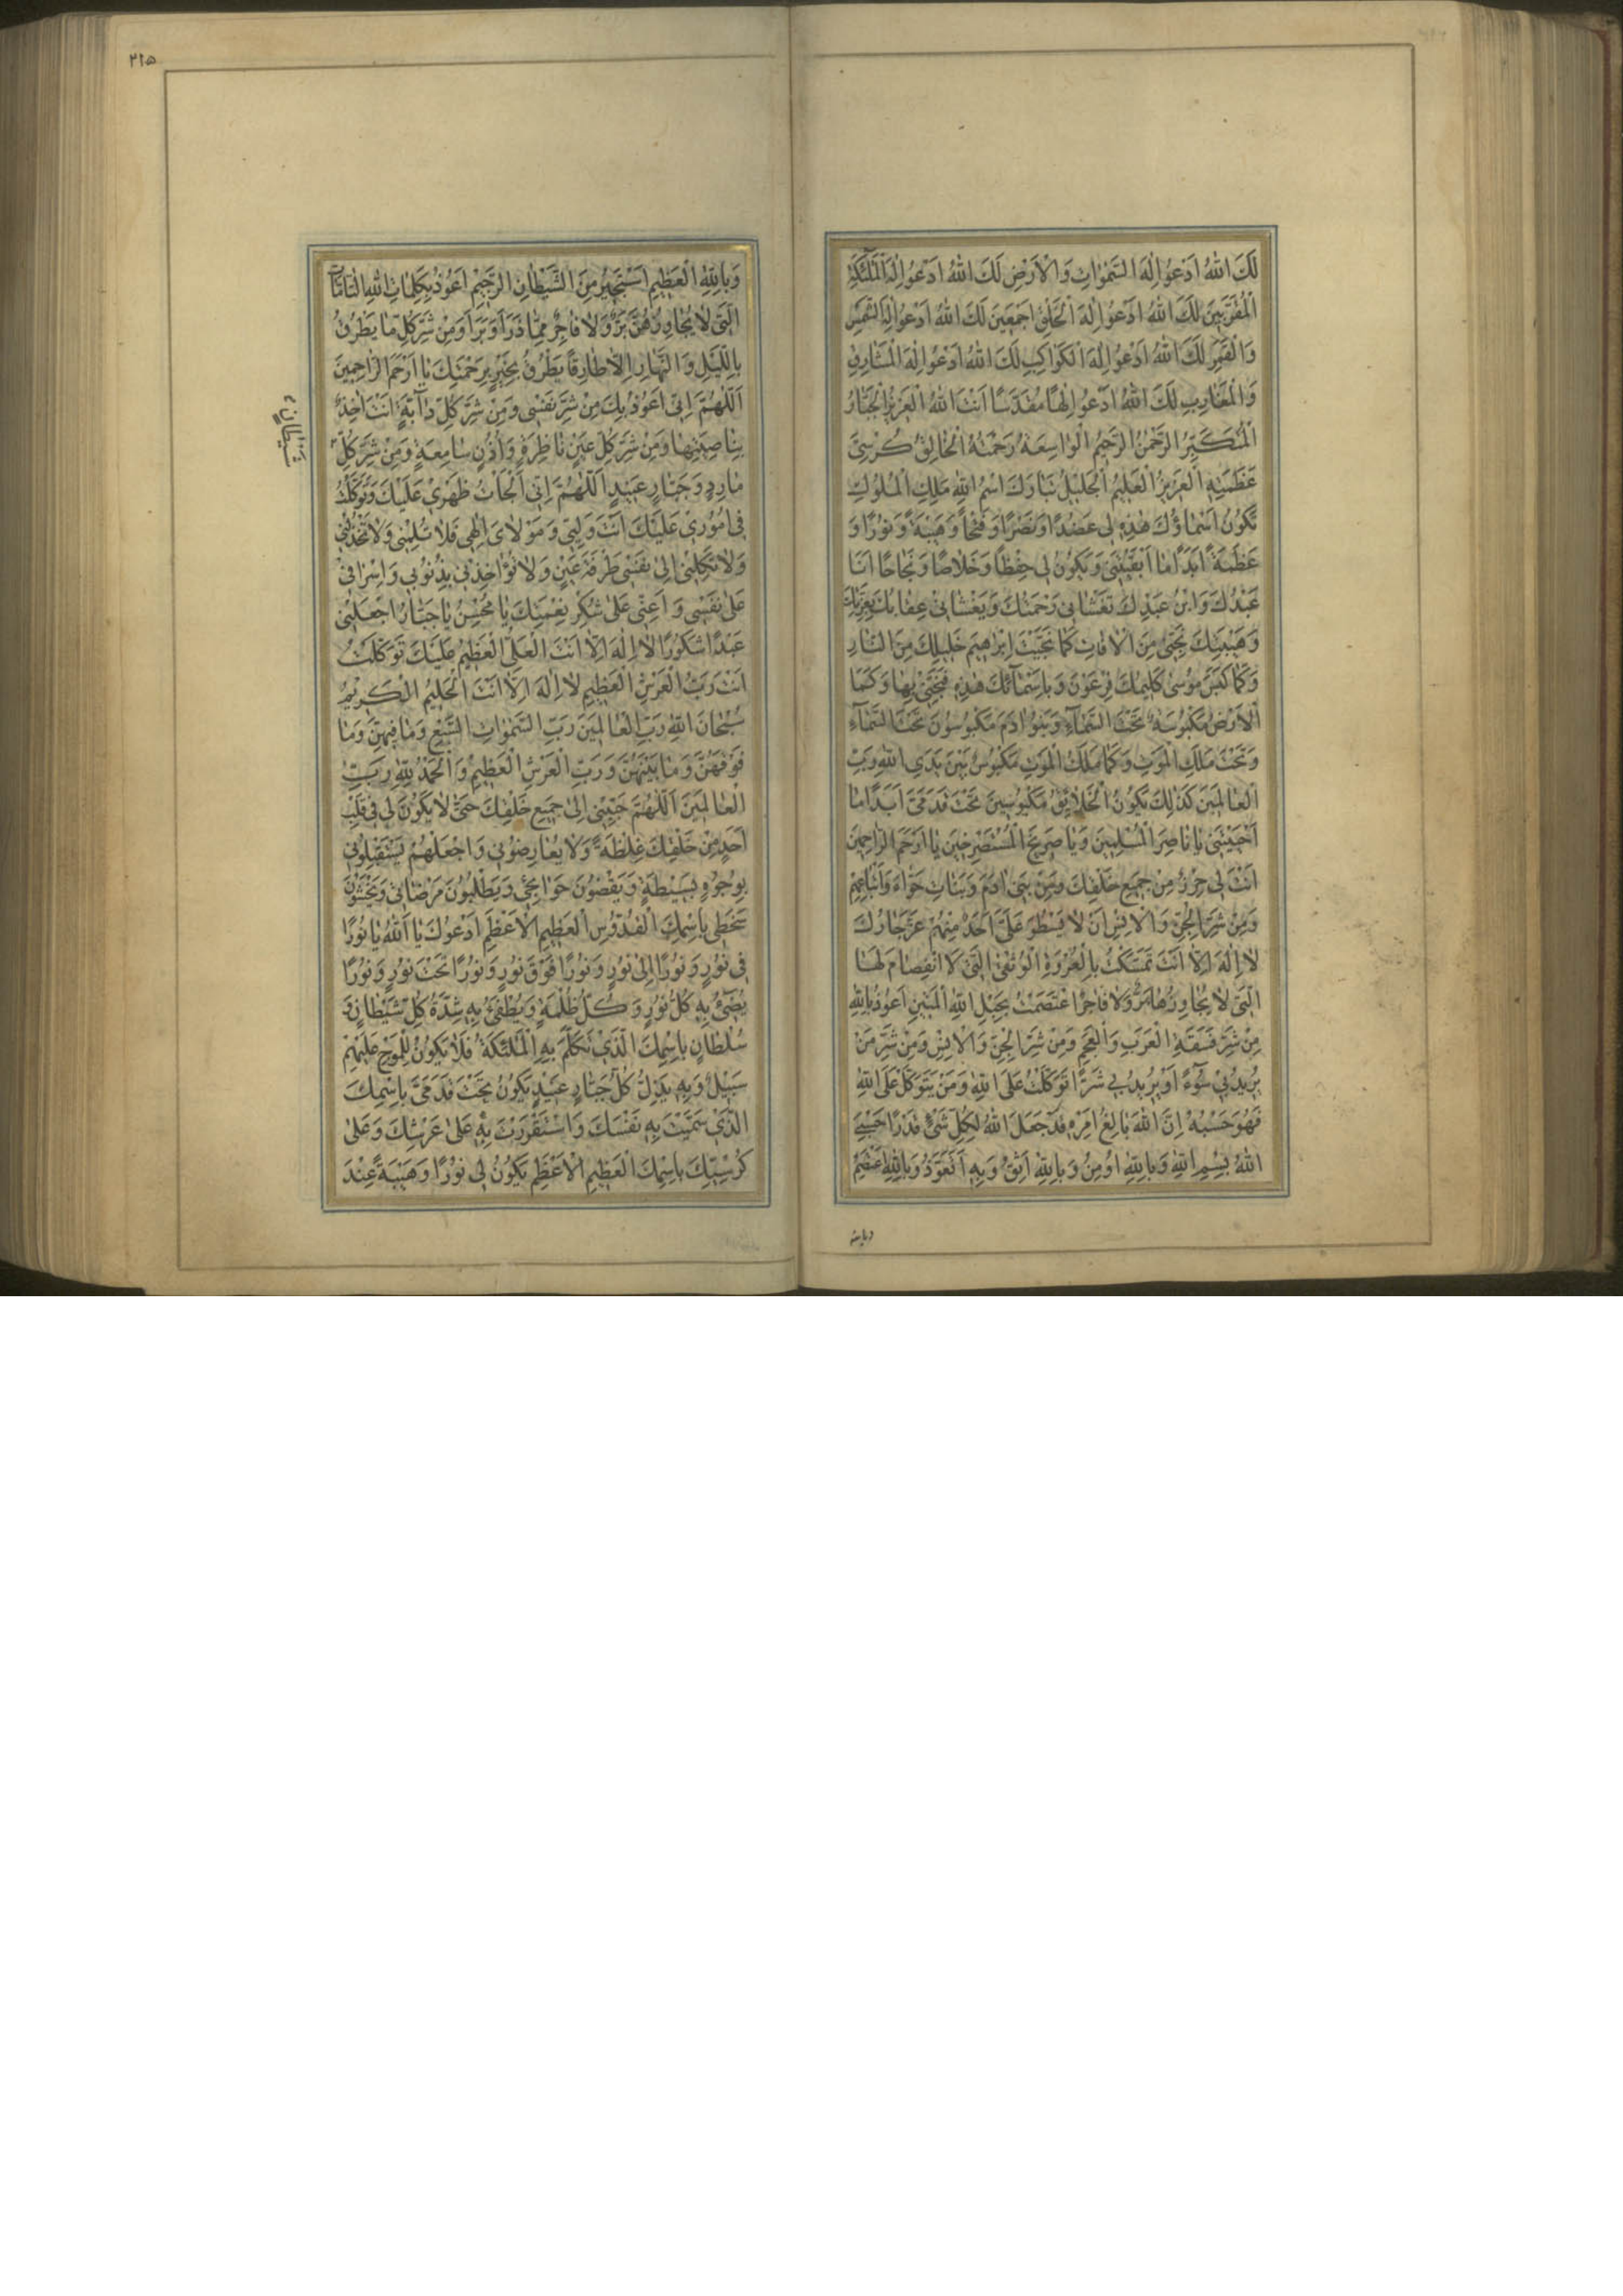 لَكَ اللهُ اَدْعُو اِلٰهَ السَّمٰوَاتِ وَالْاَرْضِ لَكَ اللهُ اَدْعُو اِلٰهَ الْمَلٰئِكَةِ
الْمُقَرَّبِينَ لَكَ اللهُ اَدْعُو اِلٰهَ الْخَلْقِ اَجْمَعِينَ لَكَ اللهُ اَدْعُو اِلٰهَ الشَّمْسِ
وَالْقَمَرِ لَكَ اللهُ اَدْعُو اِلٰهَ الْكَوَاكِبِ لَكَ اللهُ اَدْعُو اِلٰهَ الْمَشَارِقِ
وَالْمَغَارِبِ لَكَ اللهُ اَدْعُو اِلٰهًا مُقَدَّسًا اَنْتَ اللهُ الْعَزِيزُ الْجَبَّارُ
الْمُتَكَبِّرُ الرَّحْمٰنُ الرَّحِيمُ الْوَاسِعَةُ رَحْمَتُهُ الْخَالِقُ كُرْسِيَّ
عَظَمَتِهِ الْعَزِيزُ الْعَلِيمُ الْجَلِيلُ تَبَارَكَ اسْمُ اللهِ مَلِكِ الْمُلُوكِ
تَكُونُ اَسْمَاؤُكَ هٰذِهِ لِي عَضُدًا وَنَصْرًا وَفَتْحًا وَهَيْبَةً وَنُورًا وَ
عَظَمَةً اَبَدًا مَا اَبْقَيْتَنِي وَيَكُونُ لِي حِفْظًا وَخَلَاصًا وَنَجَاحًا اَنَا
عَبْدُكَ وَابْنُ عَبْدِكَ تَغْشَانِي رَحْمَتُكَ وَيَغْشَانِي عِقَابُكَ بِعِزَّتِكَ
وَهَيْبَتِكَ نَجِّنِي مِنَ الْاٰفَاتِ كَمَا نَجَّيْتَ اِبْرٰهِيمَ خَلِيلَكَ مِنَ النَّارِ
وَكَمَا كَبَسَ مُوسٰى كَلِيمُكَ فِرْعَوْنَ وَبِاَسْمَائِكَ هٰذِهِ فَنَجِّنِي بِهَا وَكَمَا
الْاَرْضُ مَكْبُوسَةٌ تَحْتَ السَّمَاءِ وَبَنُو اٰدَمَ مَكْبُوسُونَ تَحْتَ السَّمَاءِ
وَتَحْتَ مَلَكِ الْمَوْتِ وَكَمَا مَلَكُ الْمَوْتِ مَكْبُوسٌ بَيْنَ يَدَيِ اللهِ رَبِّ
الْعَالَمِينَ كَذٰلِكَ يَكُونُ الْخَلَايِقُ مَكْبُوسِينَ تَحْتَ قَدَمَيَّ اَبَدًا مَا
اَحْيَيْتَنِي يَا نَاصِرَ الْمُسْلِمِينَ وَيَا صَرِيخَ الْمُسْتَصْرِخِينَ يَا اَرْحَمَ الرَّاحِمِينَ
اَنْتَ لِي حِرْزٌ مِنْ جَمِيعِ خَلْقِكَ وَمِنْ بَنِي اٰدَمَ وَبَنَاتِ حَوَّاءَ وَاَتْبَاعِهِمْ
وَمِنْ شَرِّ الْجِنِّ وَالْاِنْسِ اَنْ لَا يَسْطُوَ عَلَيَّ اَحَدٌ مِنْهُمْ عَزَّ جَارُكَ
لَا اِلٰهَ اِلَّا اَنْتَ تَمَسَّكْتُ بِالْعُرْوَةِ الْوُثْقٰى الَّتِي لَا انْفِصَامَ لَهَا
الَّتِي لَا يُجَاوِزُهَا بَرٌّ وَلَا فَاجِرٌ اعْتَصَمْتُ بِحَبْلِ اللهِ الْمَتِينِ اَعُوذُ بِاللهِ
مِنْ شَرِّ فَسَقَةِ الْعَرَبِ وَالْعَجَمِ وَمِنْ شَرِّ الْجِنِّ وَالْاِنْسِ وَمِنْ شَرِّ مَنْ
يُرِيدُ بِي سُوءً اَوْ يُرِيدُ بِي شَرًّا تَوَكَّلْتُ عَلَى اللهِ وَمَنْ يَتَوَكَّلْ عَلَى اللهِ
فَهُوَ حَسْبُهُ اِنَّ اللهَ بَالِغُ اَمْرِهِ قَدْ جَعَلَ اللهُ لِكُلِّ شَيْءٍ قَدْرًا حَسْبِيَ
اللهُ بِسْمِ اللهِ وَبِاللهِ اُومِنُ وَبِاللهِ اَثِقُ وَبِهِ اَتَعَوَّذُ وَبِاللهِ اَعْتَصِمُ
وبالله
٢١٥
وَبِاللهِ الْعَظِيمِ اَسْتَجِيرُ مِنَ الشَّيْطَانِ الرَّجِيمِ اَعُوذُ بِكَلِمَاتِ اللهِ التَّامَّاتِ
الَّتِي لَا يُجَاوِزُهُنَّ بَرٌّ وَلَا فَاجِرٌ مِمَّا ذَرَاَ وَبَرَاَ وَمِنْ شَرِّ كُلِّ مَا يَطْرُقُ
بِاللَّيْلِ وَالنَّهَارِ اِلَّا طَارِقًا يَطْرُقُ بِخَيْرٍ بِرَحْمَتِكَ يَا اَرْحَمَ الرَّاحِمِينَ
اَللّٰهُمَّ اِنِّي اَعُوذُ بِكَ مِنْ شَرِّ نَفْسِي وَمِنْ شَرِّ كُلِّ دَابَّةٍ اَنْتَ اٰخِذٌ
بِنَاصِيَتِهَا وَمِنْ شَرِّ كُلِّ عَيْنٍ نَاظِرَةٍ وَاُذُنٍ سَامِعَةٍ وَمِنْ شَرِّ كُلِّ
شَيْطَانٍ
مَارِدٍ وَجَبَّارٍ عَنِيدٍ اَللّٰهُمَّ اِنِّي اَلْجَأْتُ ظَهْرِي عَلَيْكَ وَتَوَكَّلْتُ
فِي اُمُورِي عَلَيْكَ اَنْتَ وَلِيِّي وَمَوْلَايَ اِلٰهِي فَلَا تُسْلِمْنِي وَلَا تَخْذُلْنِي
وَلَا تَكِلْنِي اِلٰى نَفْسِي طَرْفَةَ عَيْنٍ وَلَا تُوَاخِذْنِي بِذُنُوبِي وَاِسْرَافِي
عَلٰى نَفْسِي وَاَعِنِّي عَلٰى شُكْرِ نِعْمَتِكَ يَا مُحْسِنُ يَا جَبَّارُ اجْعَلْنِي
عَبْدًا شَكُورًا لَا اِلٰهَ اِلَّا اَنْتَ الْعَلِيُّ الْعَظِيمُ عَلَيْكَ تَوَكَّلْتُ
اَنْتَ رَبُّ الْعَرْشِ الْعَظِيمِ لَا اِلٰهَ اِلَّا اَنْتَ الْحَلِيمُ الْكَرِيمُ
سُبْحَانَ اللهِ رَبِّ الْعَالَمِينَ رَبِّ السَّمٰوَاتِ السَّبْعِ وَمَا فِيهِنَّ وَمَا
فَوْقَهُنَّ وَمَا بَيْنَهُنَّ وَرَبِّ الْعَرْشِ الْعَظِيمِ وَالْحَمْدُ لِلّٰهِ رَبِّ
الْعَالَمِينَ اَللّٰهُمَّ حَبِّبْنِي اِلٰى جَمِيعِ خَلْقِكَ حَتّٰى لَا يَكُونَ لِي فِي قَلْبِ
اَحَدٍ مِنْ خَلْقِكَ غِلْظَةٌ وَلَا يُعَارِضُونِي وَاجْعَلْهُمْ يَسْتَقْبِلُونِي
بِوُجُوهٍ بَسِيطَةٍ وَيَقْضُونَ حَوَائِجِي وَيَطْلُبُونَ مَرْضَاتِي وَيَخْشَوْنَ
سَخَطِي بِاسْمِكَ الْقُدُّوسِ الْعَظِيمِ الْاَعْظَمِ اَدْعُوكَ يَا اَللهُ يَا نُورًا
فِي نُورٍ وَنُورًا اِلٰى نُورٍ وَنُورًا فَوْقَ نُورٍ وَنُورًا تَحْتَ نُورٍ وَنُورًا
يُضِيءُ بِهِ كُلُّ نُورٍ وَكُلُّ ظُلْمَةٍ وَيُطْفَئُ بِهِ شِدَّةُ كُلِّ شَيْطَانٍ وَ
سُلْطَانٍ بِاسْمِكَ الَّذِي تَكَلَّمَ بِهِ الْمَلٰئِكَةُ فَلَا يَكُونُ لِلْمَوْجِ عَلَيْهِمْ
سَبِيلٌ وَبِهِ يَذِلُّ كُلُّ جَبَّارٍ عَنِيدٍ يَكُونُ تَحْتَ قَدَمَيَّ بِاسْمِكَ
الَّذِي سَمَّيْتَ بِهِ نَفْسَكَ وَاسْتَقْرَرْتَ بِهِ عَلٰى عَرْشِكَ وَعَلٰى
كُرْسِيِّكَ بِاسْمِكَ الْعَظِيمِ الْاَعْظَمِ يَكُونُ لِي نُورًا وَهَيْبَةً عِنْدَ